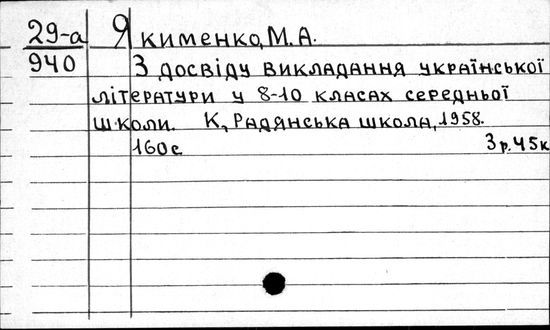 29-а Якименко, М.А.
940 З досвіду викладання української
літератури у 8-10 класах середньої
школи. К, Радянська школа, 1958.
160с. 3р.45к